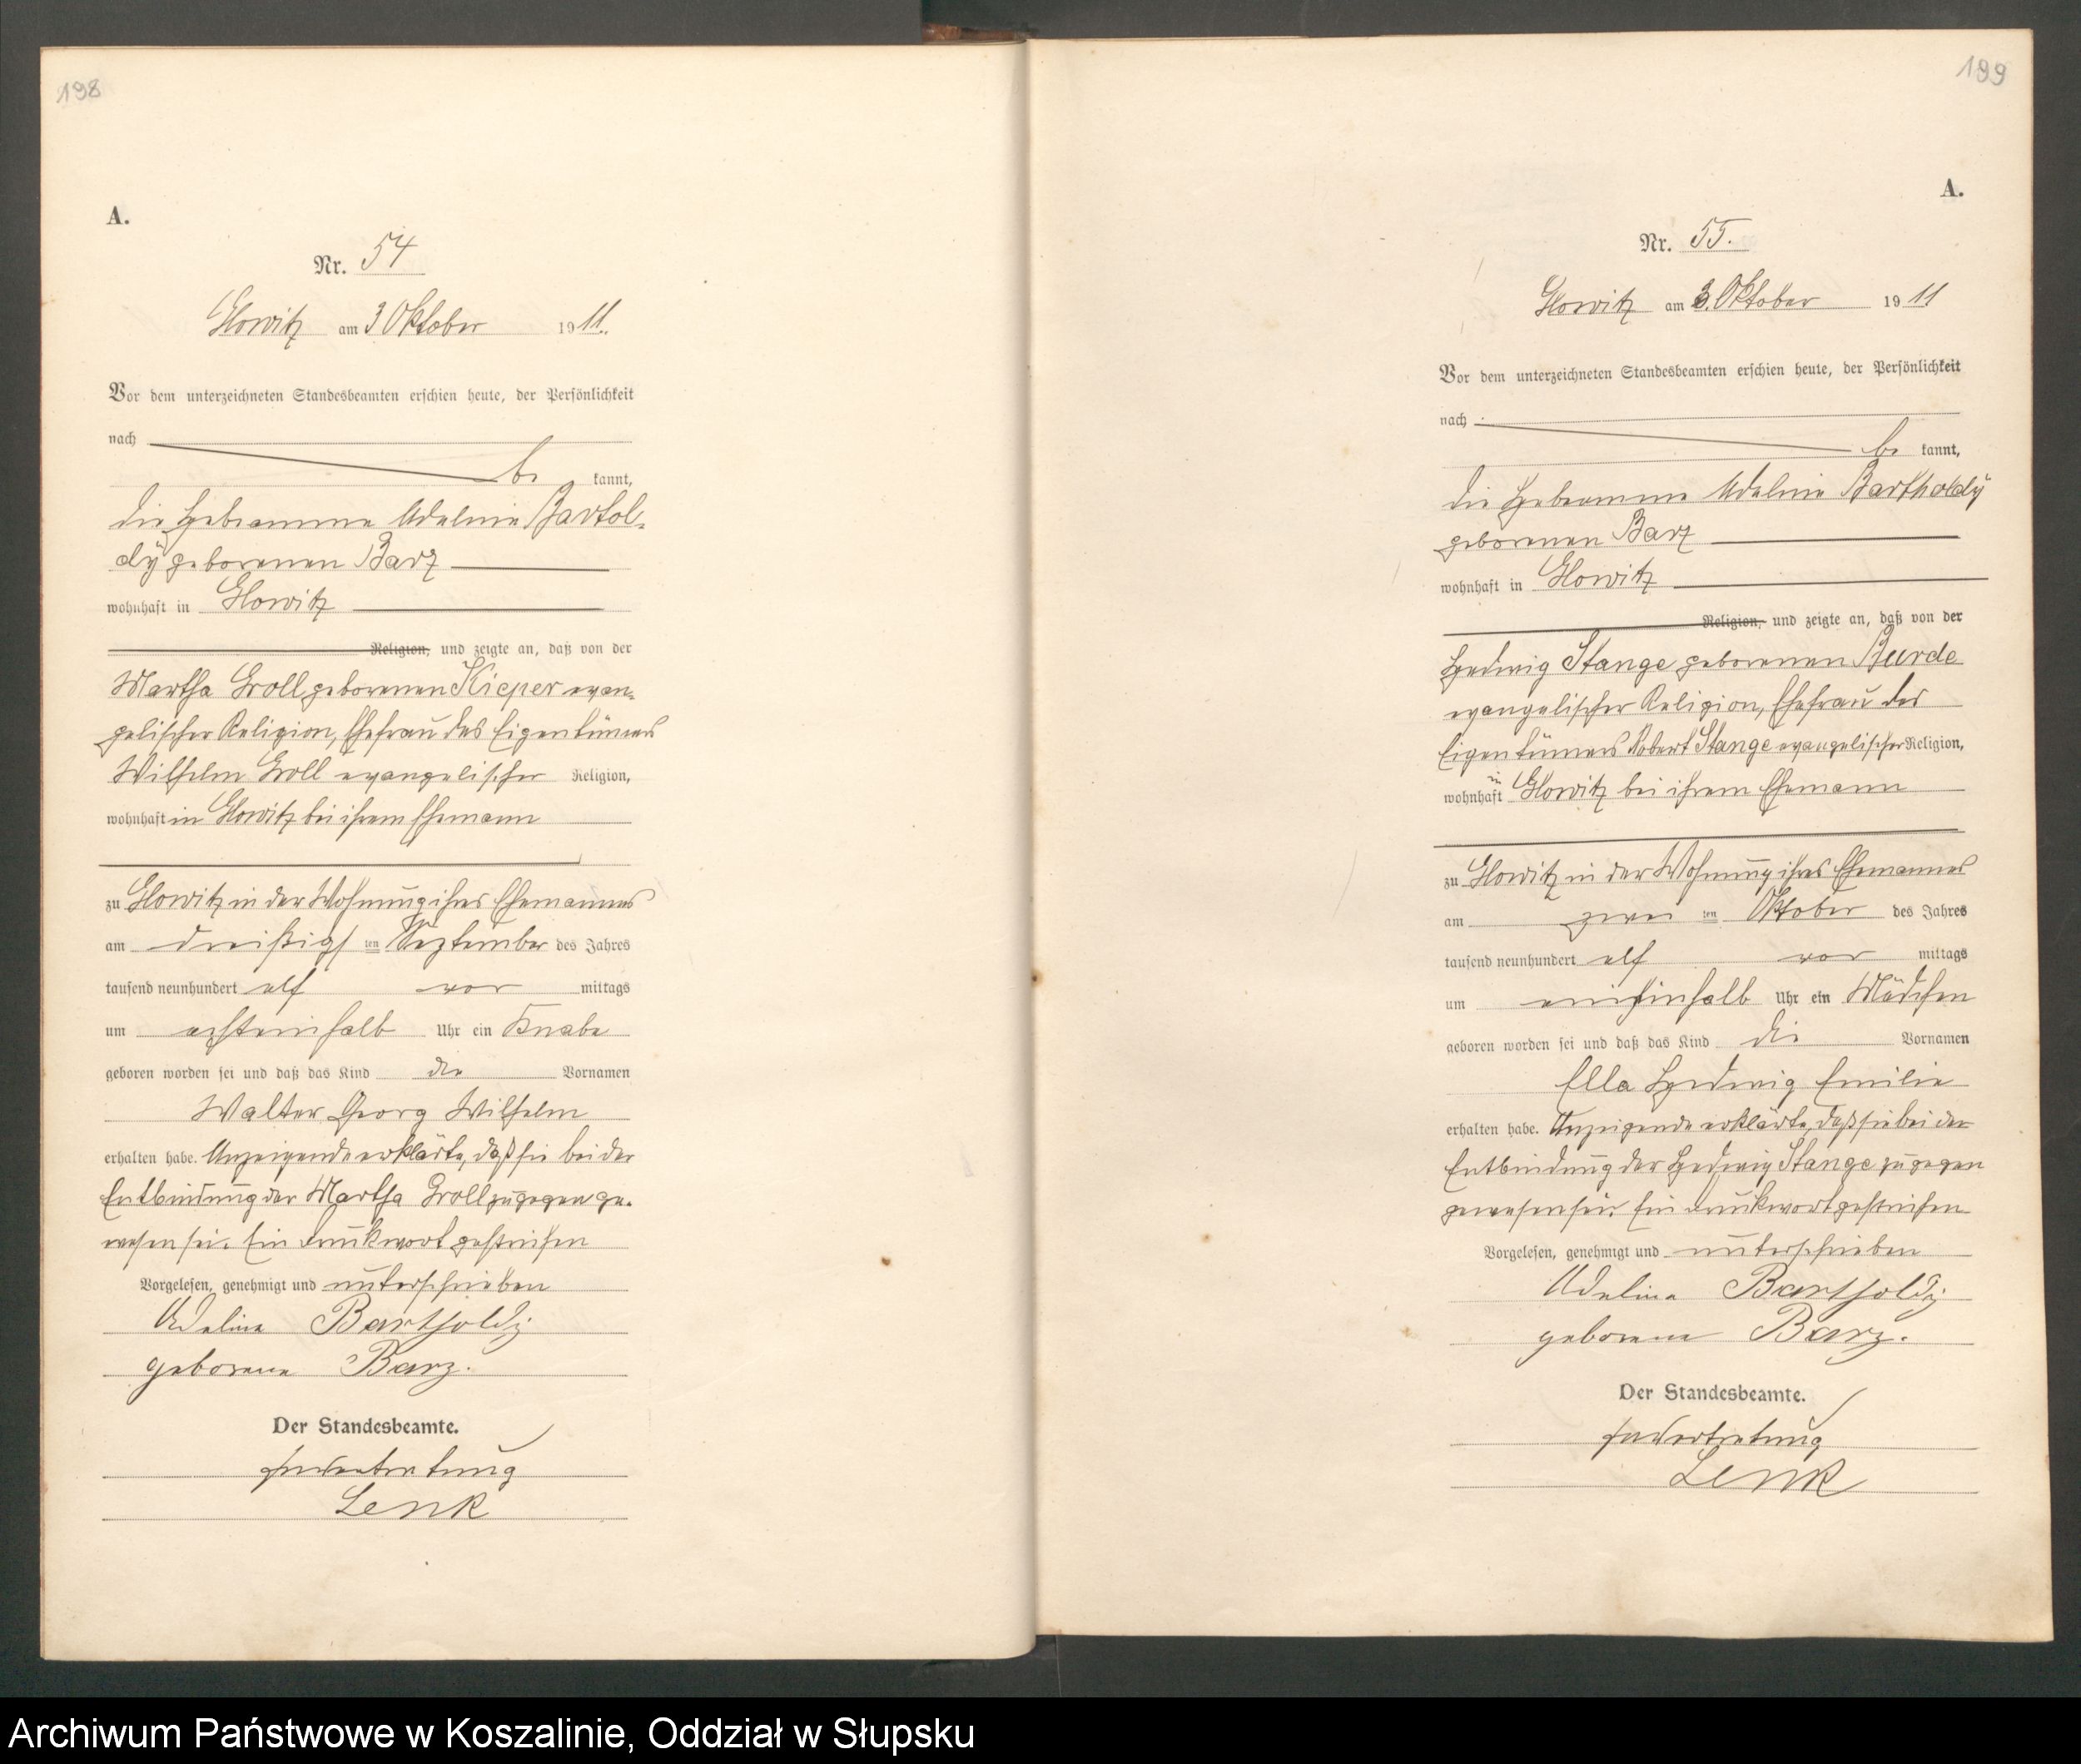 198
A.
Nr. 54
Glowitz am 3 Oktober 1911.
Vor dem unterzeichneten Standesbeamten erschien heute, der Persönlichkeit
nach
be kannt,
die Hebeamme Adeline Bartol-
dy geborenen Barz
wohnhaft in Glowitz
Religion, und zeigte an, daß von der
Martha Groll geborenen Kieper evan-
gelischer Religion, Ehefrau des Eigentümers
Wilhelm Groll evangelischer Religion,
wohnhaft in Glowitz bei ihrem Ehemann
zu Glowitz in der Wohnung ihres Ehemannes
am dreißigs ten September des Jahres
tausend neunhundert elf vor mittags
um achteinhalb Uhr ein Knabe
geboren worden sei und daß das Kind die Vornamen
Walter Georg Wilhelm
erhalten habe. Anzeigende erklärte, daß sie bei der
Entbindung der Martha Groll zugegen ge-
wesen sei. Ein Druckwort gestrichen
Vorgelesen, genehmigt und unterschrieben
Adeline Bartholdy
geborene Barz.
Der Standesbeamte.
In Vertretung
Lenk
199
A.
Nr. 55.
Glowitz am 3. Oktober 1911
Vor dem unterzeichneten Standesbeamten erschien heute, der Persönlichkeit
nach
be kannt,
die Hebeamme Adeline Bartholdy
geborenen Barz
wohnhaft in Glowitz
Religion, und zeigte an, daß von der
Hedwig Stange geborenen Burde
evangelischer Religion, Ehefrau des
Eigentümers Robert Stange evangelischer Religion,
wohnhaft in Glowitz bei ihrem Ehemann
zu Glowitz in der Wohnung ihres Ehemannes
am zwei ten Oktober des Jahres
tausend neunhundert elf vor mittags
um einhalb Uhr ein Mädchen
geboren worden sei und daß das Kind die Vornamen
Ella Hedwig Emilie
erhalten habe. Anzeigende erklärte, daß sie bei der
Entbindung der Hedwig Stange zugegen
gewesen sei. Ein Druckwort gestrichen
Vorgelesen, genehmigt und unterschrieben
Adeline Bartholdy
geborene Barz.
Der Standesbeamte.
In Vertretung
Lenk
Archiwum Państwowe w Koszalinie, Oddział w Słupsku